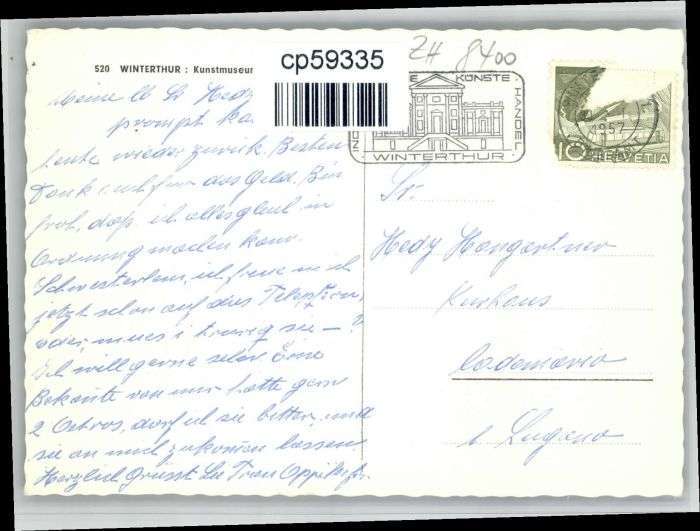 520 WINTERTHUR : Kunstmuseum
cp59335
ZH 8400
KÜNSTE · HANDEL ·
WINTERTHUR
1957
10 HELVETIA
Meine lb Sr Hedy
prompt
heute wieder zurück. Besten
Dank auch für das Geld. Bin
froh, dass ich alles glech in
Ordnung machen kann.
Schwesterlein, ich freue mich
jetzt schon auf das Telephon,
oder muss i truurig sie – ?
Ich will gerne sehn. Eine
Bekante von mir hätte gern
2 Ostros, darf ich sie bitten, und
sie an mich zukommen lassen.
Herzlich Grüsst Sie Frau
Sr.
Hedy Hongartner
Kurhaus
Cademario
b Lugano